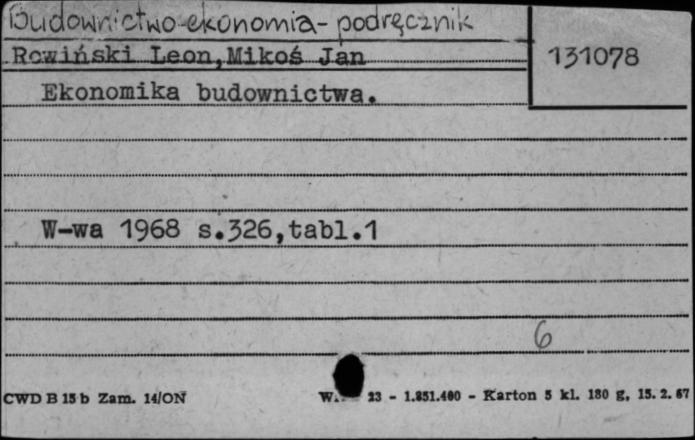 Budownictwo-ekonomia-podręcznik
Rowiński Leon,Mikoś Jan
131078
Ekonomika budownictwa.
W-wa 1968 s.326,tabl.1
6
CWD B 15 b Zam. 14/ON
23 - 1.851.400 - Karton 5 kl. 180 g, 15. 2. 67